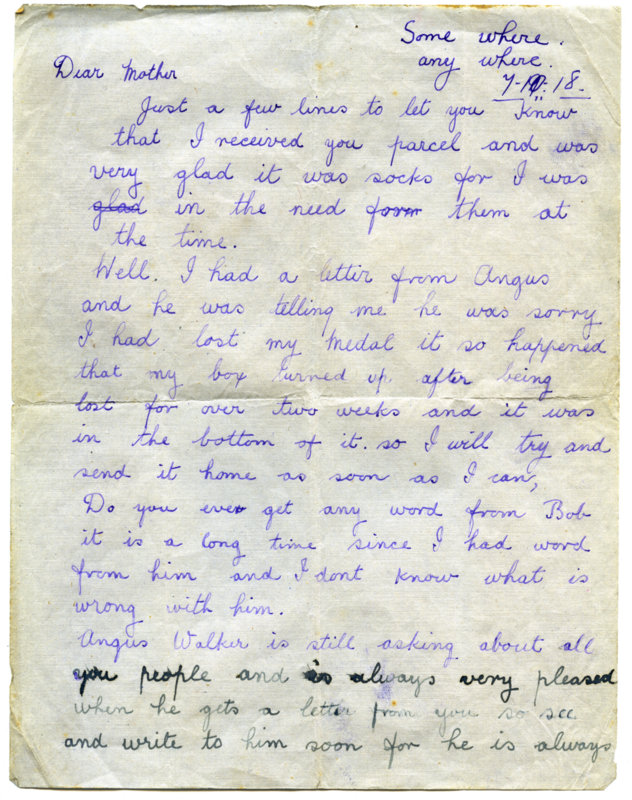 Some where.
any where.
7-10-18.
Dear Mother
Just a few lines to let you Know
that I received you parcel and was
very glad it was socks for I was
glad in the need for them at
the time.
Well. I had a letter from Angus
and he was telling me he was sorry
I had lost my Medal it so happened
that my box turned up after being
lost for over two weeks and it was
in the bottom of it. so I will try and
send it home as soon as I can,
Do you ever get any word from Bob
it is a long time since I had word
from him and I dont Know what is
wrong with him.
Angus Walker is still asking about all
you people and is always very pleased
when he gets a letter from you so see
and write to him soon for he is always